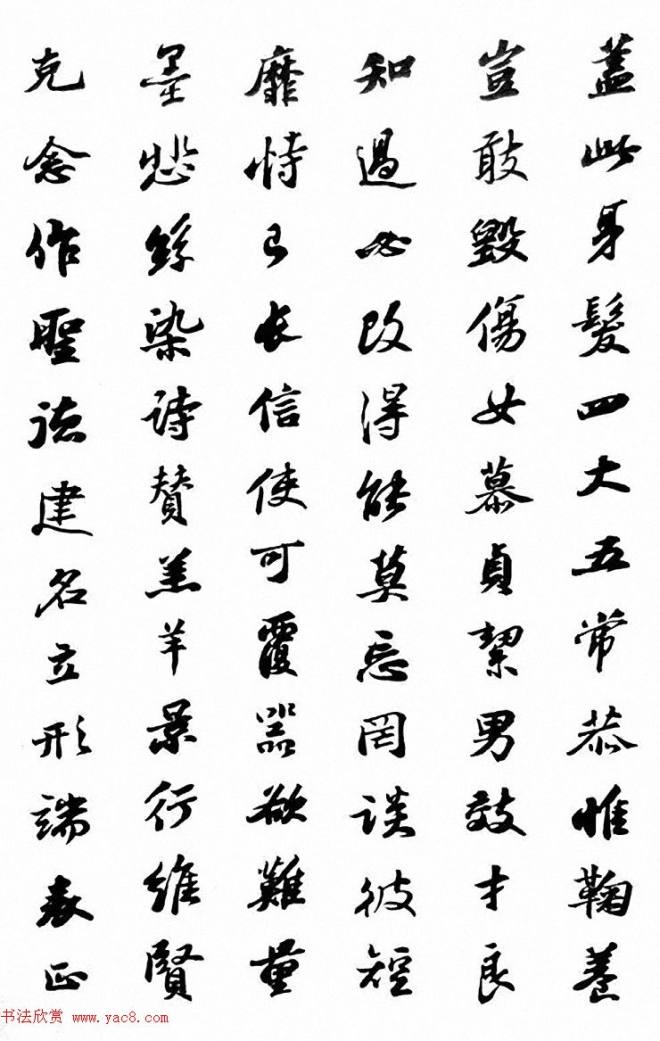 蓋此身髮四大五常恭惟鞠養
豈敢毀傷女慕貞絜男效才良
知過必改得能莫忘罔談彼短
靡恃己長信使可覆器欲難量
墨悲絲染詩贊羔羊景行維賢
克念作聖德建名立形端表正
书法欣赏 www.yac8.com